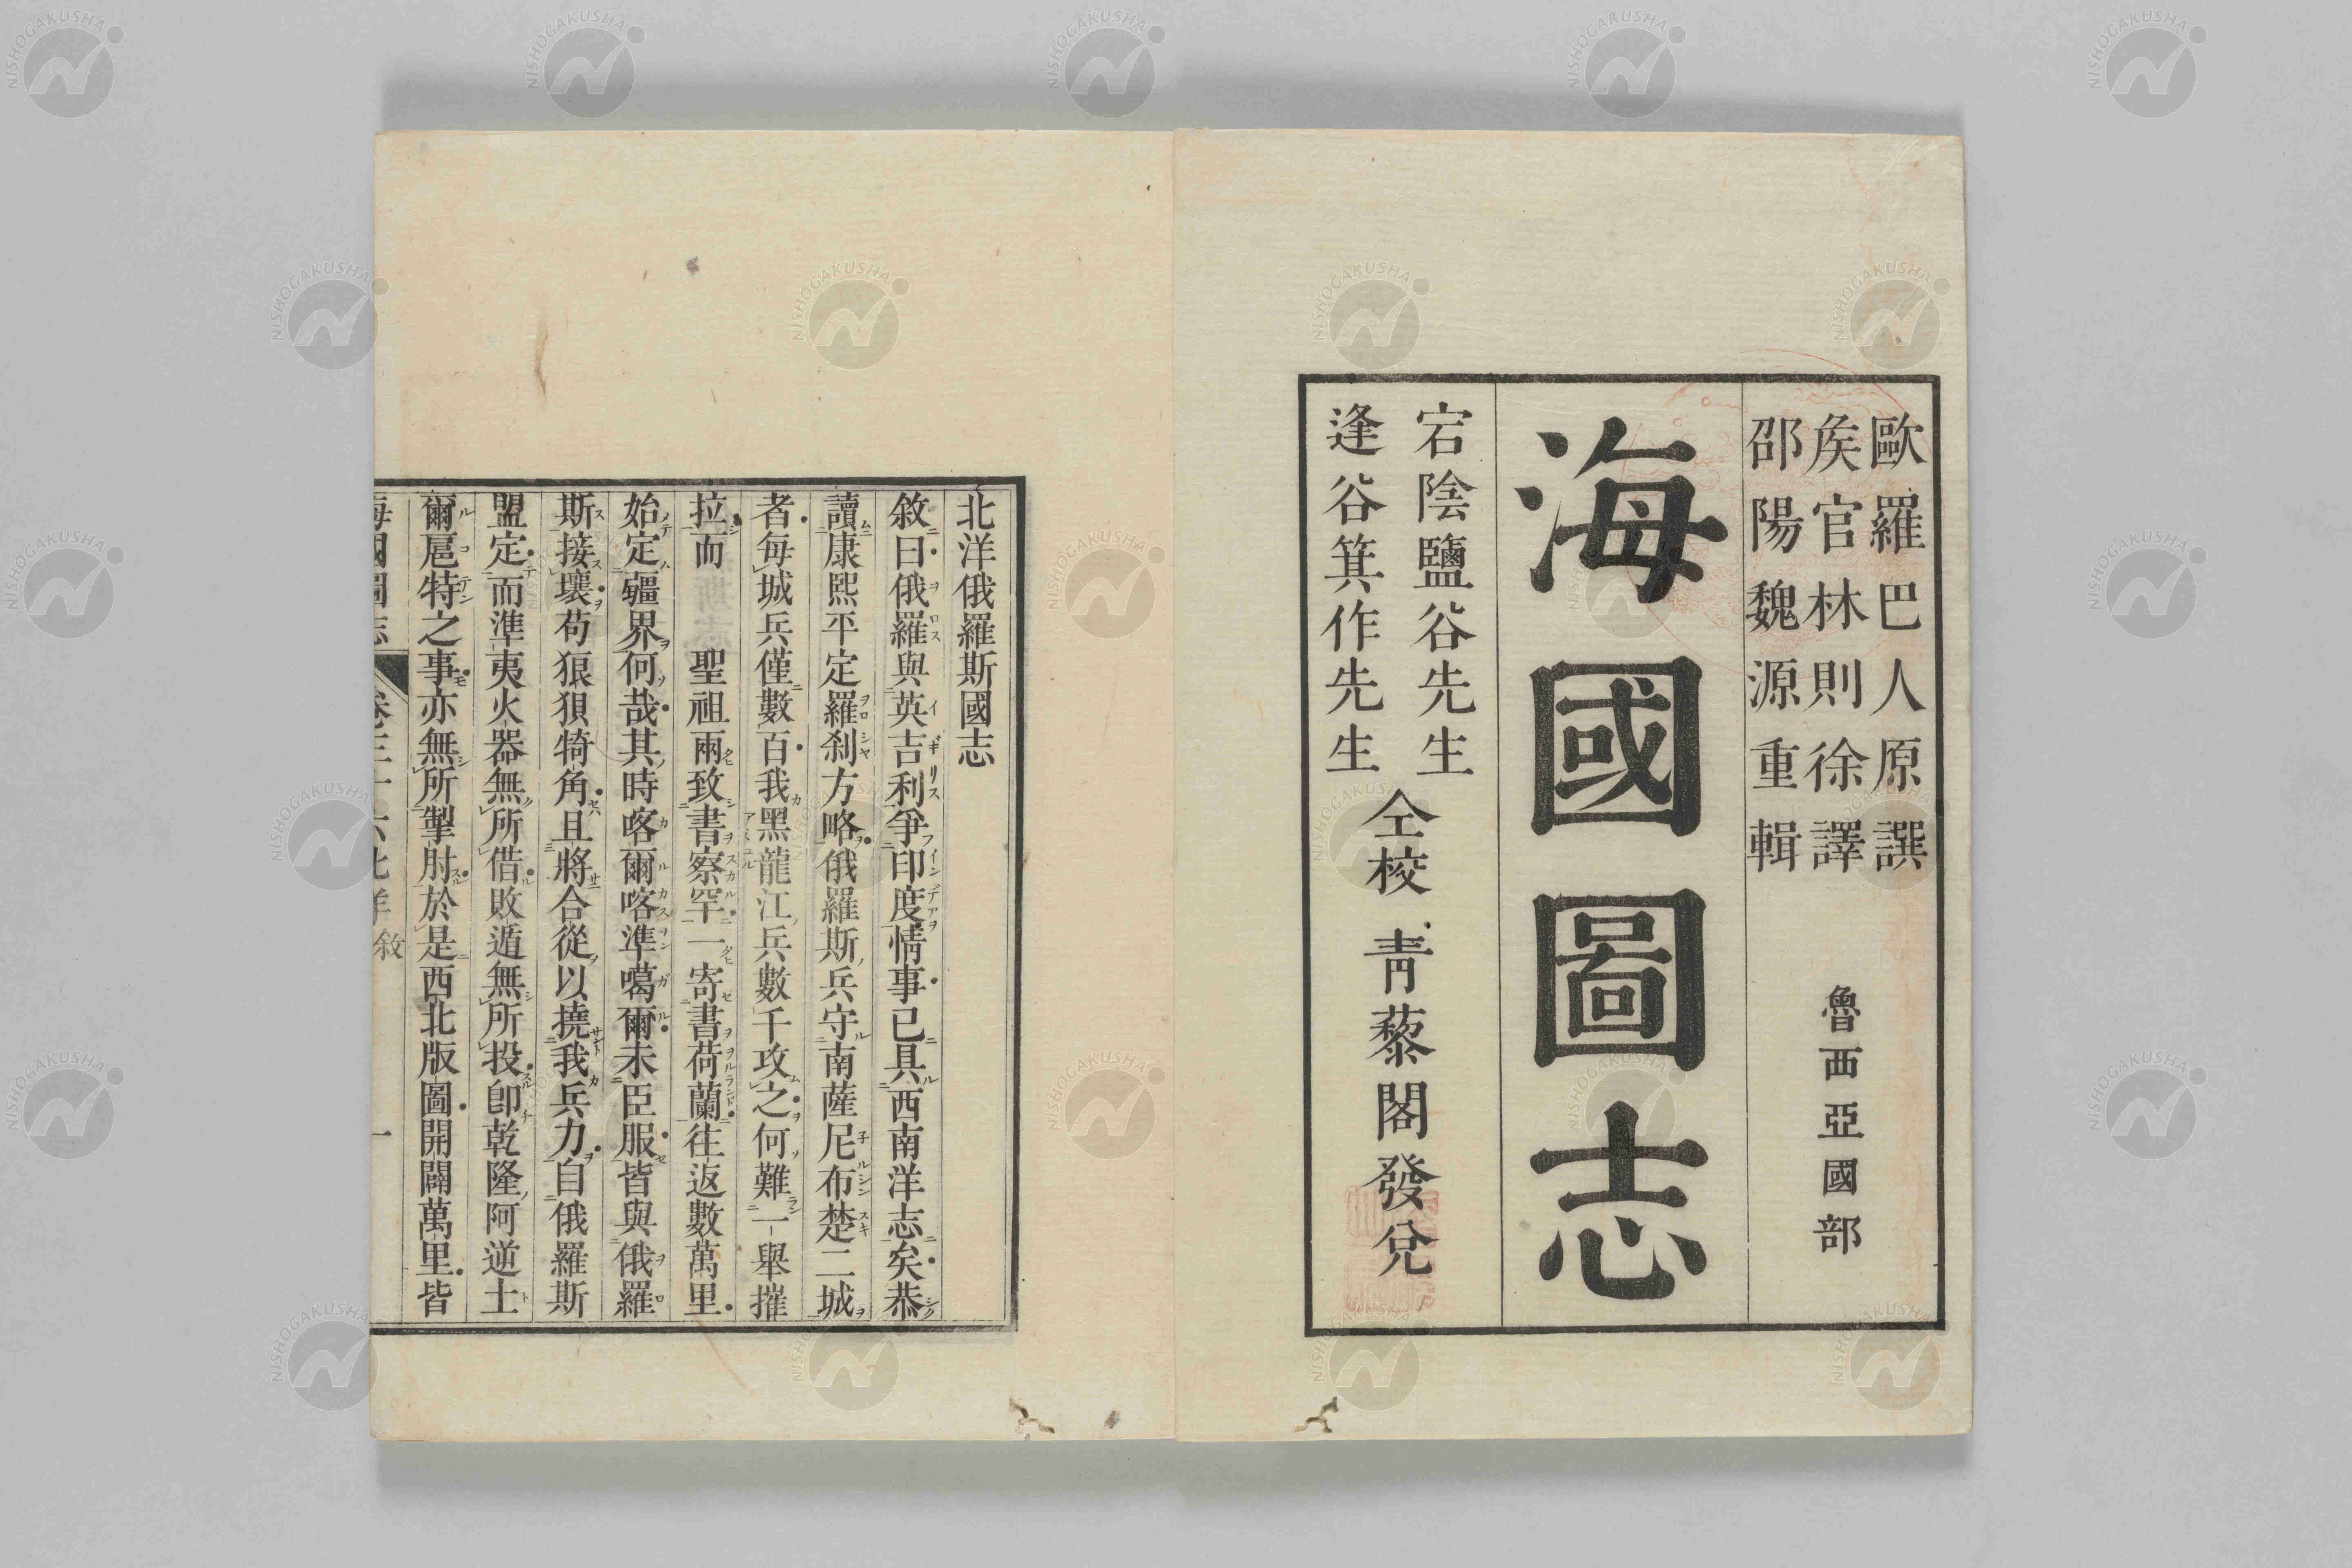 歐羅巴人原譔
矦官林則徐譯
邵陽魏源重輯
魯西亞國部
海國圖志
宕陰鹽谷先生
逢谷箕作先生
仝校
靑藜閣發兌
北洋俄羅斯國志
敘曰俄羅與英吉利爭印度情事已具西南洋志矣恭
讀康熙平定羅刹方略俄羅斯兵守南薩尼布楚二城
者每城兵僅數百我黑龍江兵數千攻之何難一舉摧
拉而 聖祖兩致書察罕一寄書荷蘭往返數萬里
始定疆界何哉其時喀爾喀準噶爾未臣服皆與俄羅
斯接壤苟狼狽犄角且將合從以撓我兵力自俄羅斯
盟定而準夷火器無所借敗遁無所投卽乾隆阿逆土
爾扈特之事亦無所掣肘於是西北版圖開闢萬里皆
海國圖志 卷三十六北洋敘 一
NISHOGAKUSHA